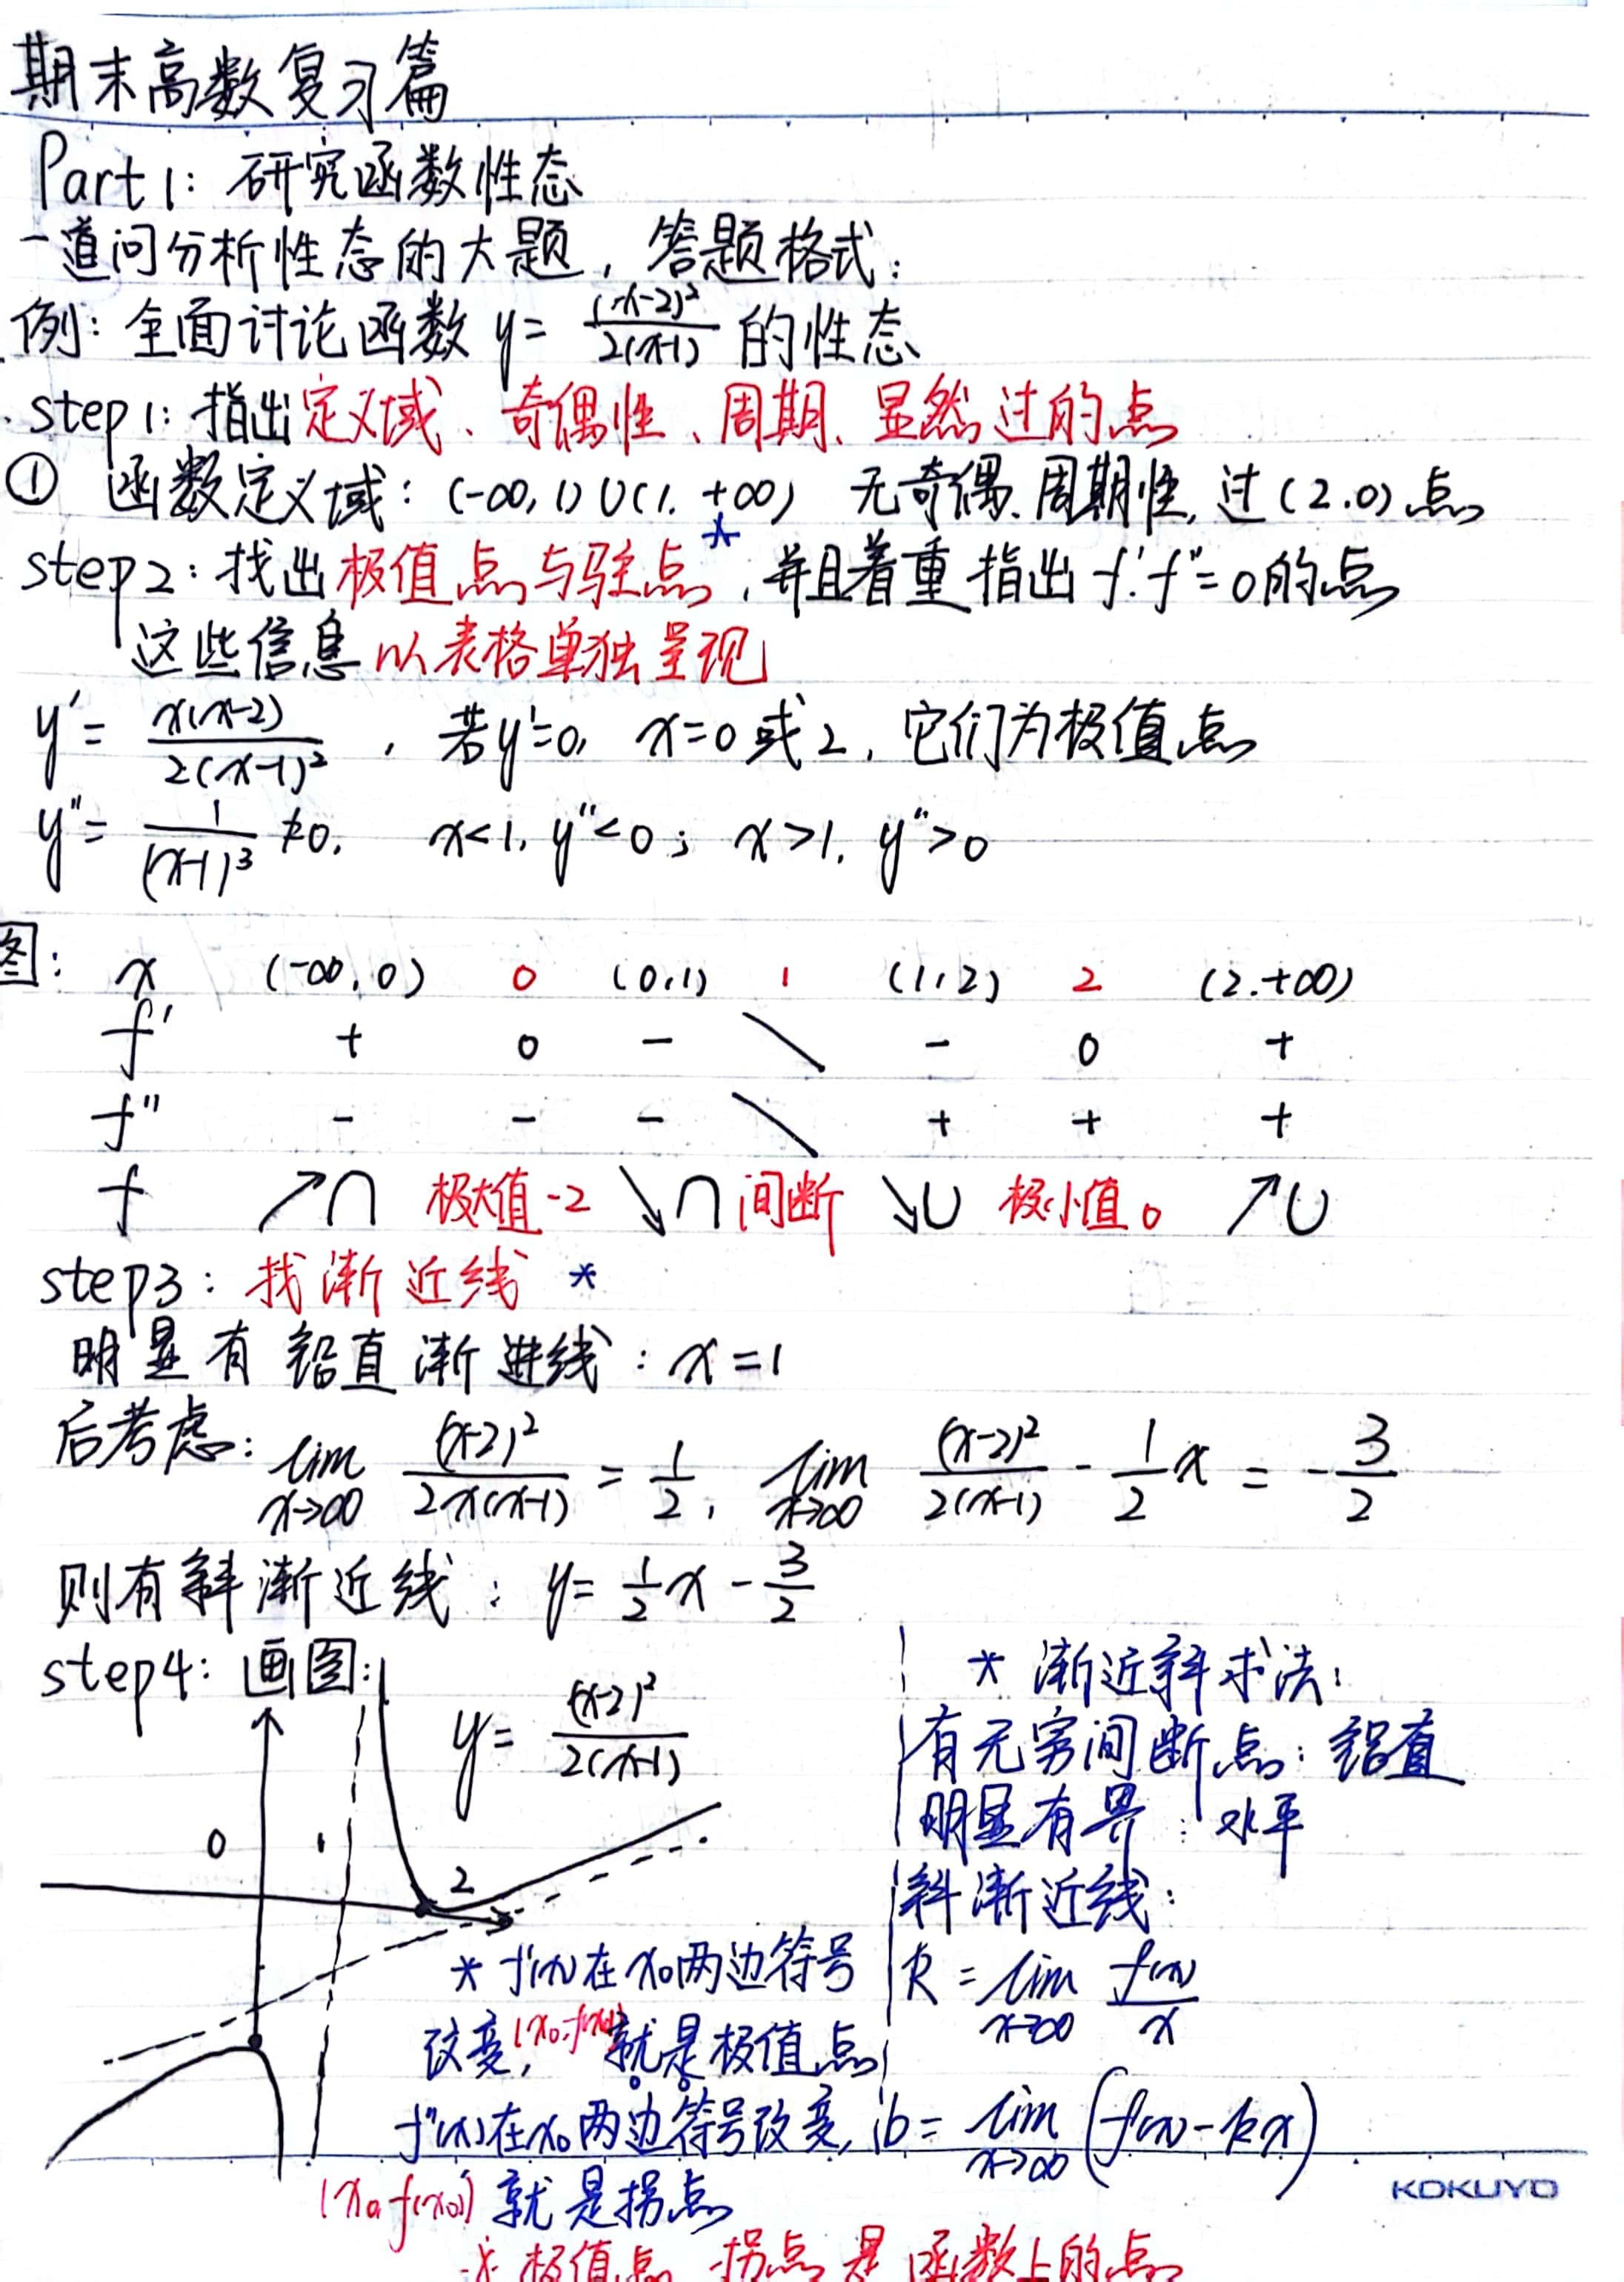 期末高数复习篇
Part1: 研究函数性态
一道问分析性态的大题，答题格式：
例：全面讨论函数 y= (x-2)²/2(x-1) 的性态
step1: 指出定义域、奇偶性、周期、显然过的点
① 函数定义域：(-∞,1)∪(1,+∞) 无奇偶、周期性, 过(2.0)点
step2: 找出极值点与驻点*，并且着重指出 f'.f''=0的点
这些信息以表格单独呈现
y'= x(x-2)/2(x-1)² ，若y'=0, x=0或2, 它们为极值点
y''= 1/(x-1)³ ≠0, x<1, y''<0; x>1, y''>0
图: x (-∞,0) 0 (0,1) 1 (1,2) 2 (2.+∞)
f' + 0 - \ - 0 +
f'' - - - \ + + +
f ↗∩ 极大值-2 ↘∩ 间断 ↘∪ 极小值0 ↗∪
step3: 找渐近线 *
明显有铅直渐进线：x=1
后考虑: lim x→∞ (x-2)²/2x(x-1) = 1/2, lim x→∞ (x-2)²/2(x-1) - 1/2 x = -3/2
则有斜渐近线：y= 1/2 x - 3/2
step4: 画图:
y= (x-2)²/2(x-1)
0 1
2
* f'(x)在x₀两边符号
改变, (x₀,f(x₀)) 就是极值点
f''(x)在x₀两边符号改变,
(x₀,f(x₀)) 就是拐点
* 极值点 拐点是函数上的点
* 渐近斜求法:
有无穷间断点: 铅直
明显有界: 水平
斜渐近线:
k = lim x→∞ f(x)/x
b = lim x→∞ (f(x)-kx)
KOKUYO